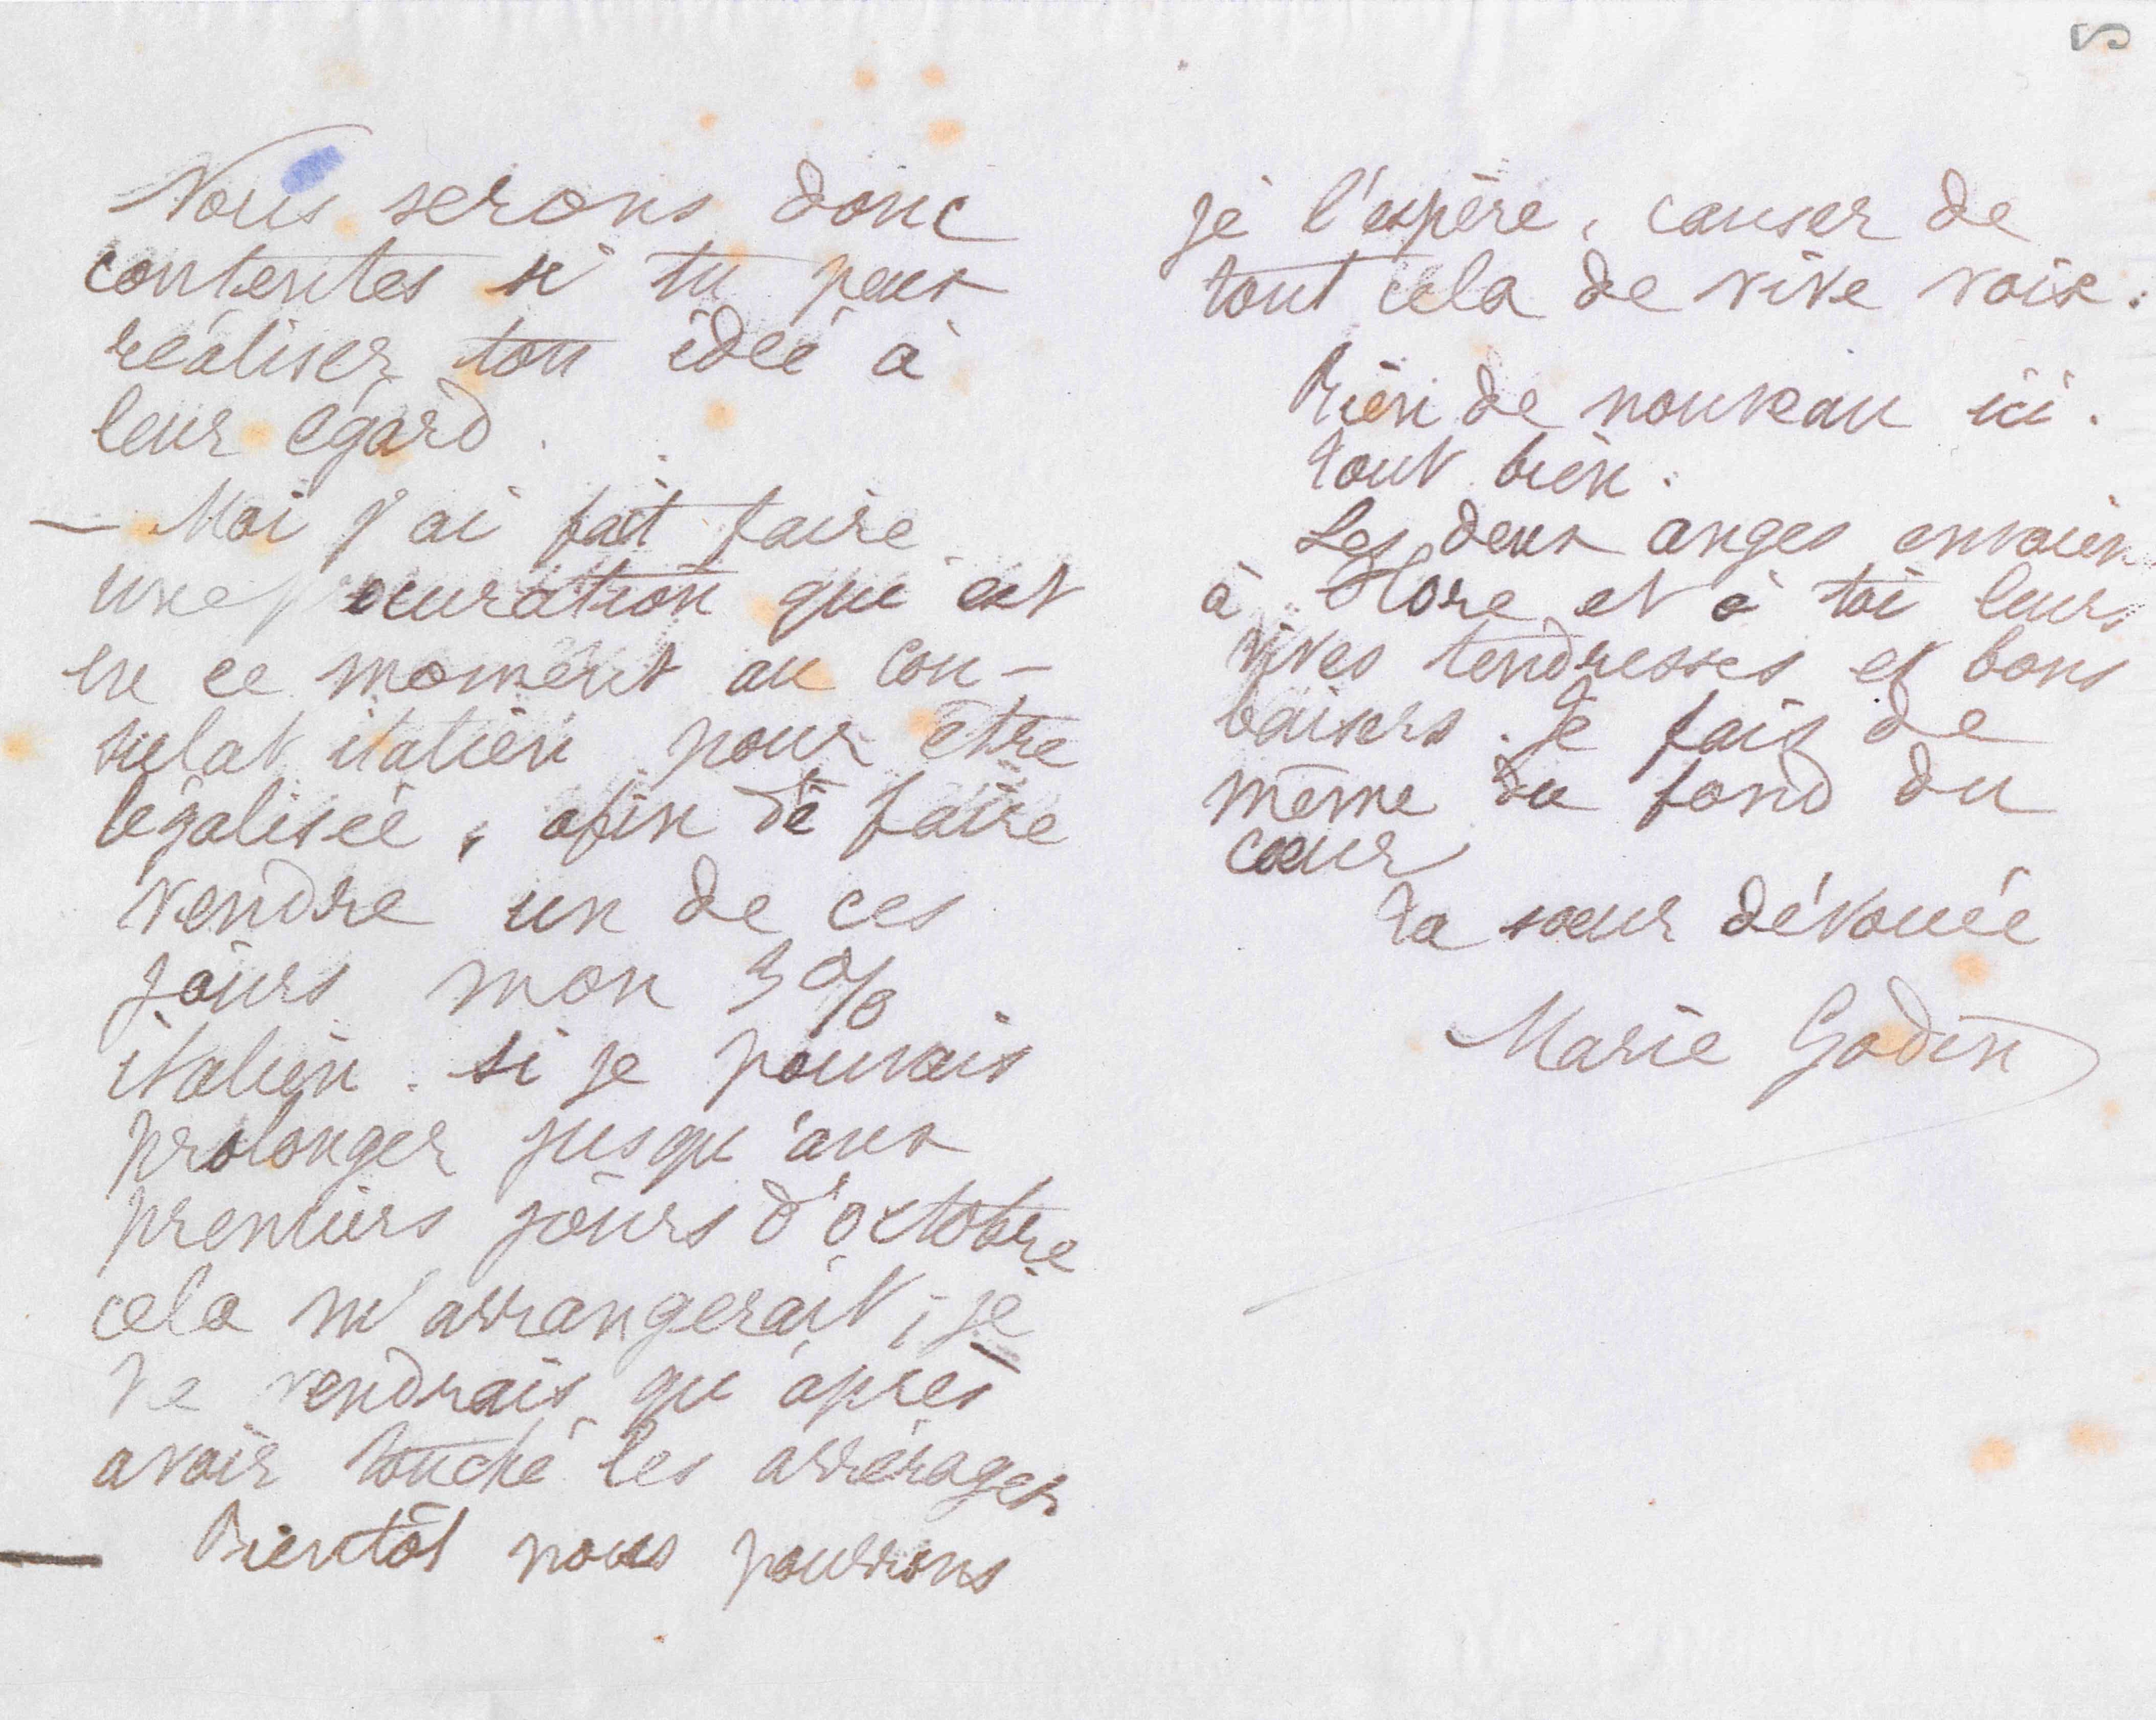 Nous serons donc
contentes si tu peux
réaliser ton idée à
leur égard.
— Moi j'ai fait faire
une procuration qui est
en ce moment au con-
sulat italien pour être
légalisée, afin de faire
vendre un de ces
jours mon 3 %
italien. si je pouvais
prolonger jusqu'aux
premiers jours d'octobre
cela m'arrangerait ; je
ne vendrais qu'après
avoir touché les arrérages
— Bientôt nous pourrons
je l'espère, causer de
tout cela de vive voix.
Rien de nouveau ici.
Tout bien.
Les deux anges envoient
à Flore et à toi leurs
vives tendresses et bons
baisers. Je fais de
même du fond du
cœur
Ta sœur dévouée
Marie Godin